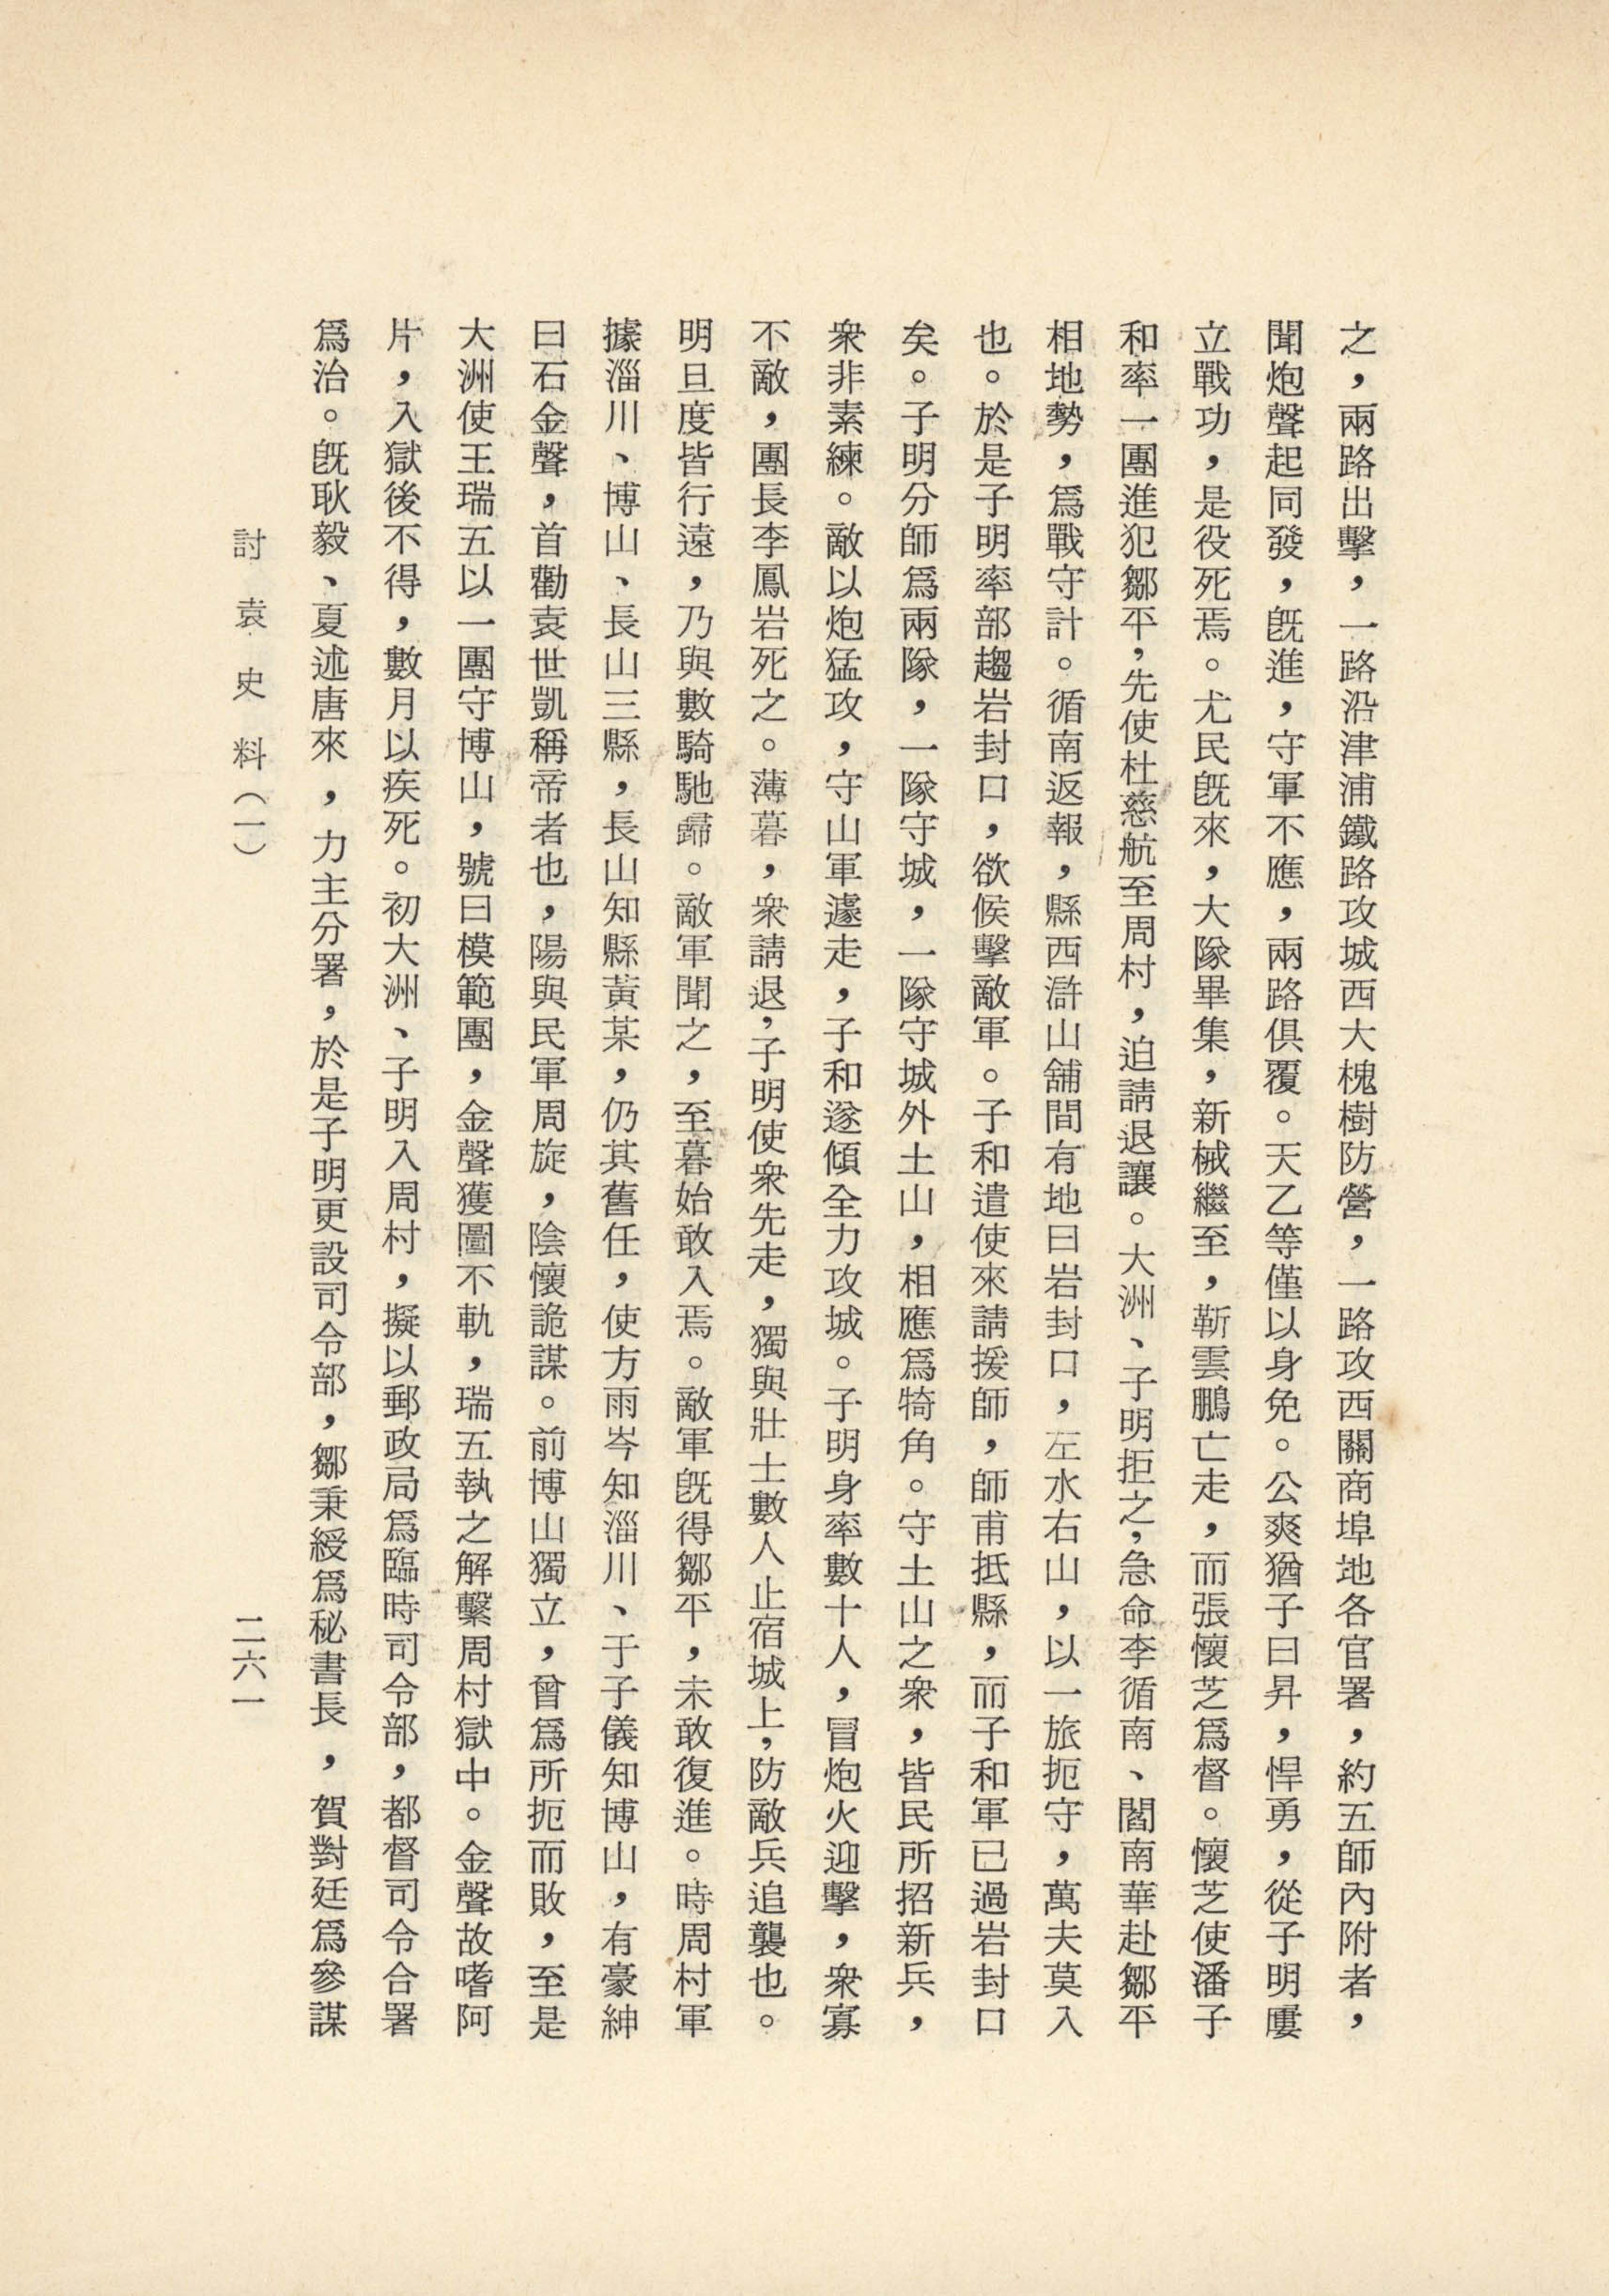 之，兩路出擊，一路沿津浦鐵路攻城西大槐樹防營，一路攻西關商埠地各官署，約五師內附者，
聞炮聲起同發，旣進，守軍不應，兩路俱覆。天乙等僅以身免。公爽猶子曰昇，悍勇，從子明屢
立戰功，是役死焉。尤民旣來，大隊畢集，新械繼至，靳雲鵬亡走，而張懷芝爲督。懷芝使潘子
和率一團進犯鄒平，先使杜慈航至周村，迫請退讓。大洲、子明拒之，急命李循南、閻南華赴鄒平
相地勢，爲戰守計。循南返報，縣西滸山舖間有地曰岩封口，左水右山，以一旅扼守，萬夫莫入
也。於是子明率部趨岩封口，欲候擊敵軍。子和遣使來請援師，師甫抵縣，而子和軍已過岩封口
矣。子明分師爲兩隊，一隊守城，一隊守城外土山，相應爲犄角。守土山之衆，皆民所招新兵，
衆非素練。敵以炮猛攻，守山軍遽走，子和遂傾全力攻城。子明身率數十人，冒炮火迎擊，衆寡
不敵，團長李鳳岩死之。薄暮，衆請退，子明使衆先走，獨與壯士數人止宿城上，防敵兵追襲也。
明旦度皆行遠，乃與數騎馳歸。敵軍聞之，至暮始敢入焉。敵軍旣得鄒平，未敢復進。時周村軍
據淄川、博山、長山三縣，長山知縣黃某，仍其舊任，使方雨岑知淄川、于子儀知博山，有豪紳
曰石金聲，首勸袁世凱稱帝者也，陽與民軍周旋，陰懷詭謀。前博山獨立，曾爲所扼而敗，至是
大洲使王瑞五以一團守博山，號曰模範團，金聲獲圖不軌，瑞五執之解繫周村獄中。金聲故嗜阿
片，入獄後不得，數月以疾死。初大洲、子明入周村，擬以郵政局爲臨時司令部，都督司令合署
爲治。旣耿毅、夏述唐來，力主分署，於是子明更設司令部，鄒秉綬爲秘書長，賀對廷爲參謀
討袁史料（一）
二六一